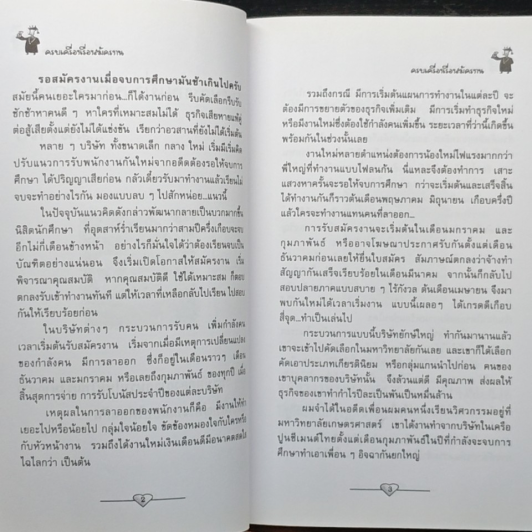 ครบเครื่องเรื่องสมัครงาน
รอสมัครงานเมื่อจบการศึกษามันช้าเกินไปครับ
สมัยนี้คนเยอะใครมาก่อน...ก็ได้งานก่อน รีบคัดเลือกรีบรับ
ชักช้าหาคนดี ๆ หาใครที่เหมาะสมไม่ได้ ธุรกิจเสียหายแพ้คู่
ต่อสู้เสียตั้งแต่ยังไม่ได้แข่งขัน เรียกว่าอวสานทั้งยังไม่ได้เริ่มต้น
หลาย ๆ บริษัท ทั้งขนาดเล็ก กลาง ใหม่ เริ่มมีเริ่มคิด
ปรับแนวการรับพนักงานกันใหม่จากอดีตต้องรอให้จบการ
ศึกษา ได้ปริญญาเสียก่อน กลัวเดี๋ยวรับมาทำงานแล้วเรียนไม่
จบจะทำอย่างไรกัน มองแบบลบ ๆ ไปสักหน่อย...แนวนี้
ในปัจจุบันแนวคิดดังกล่าวพัฒนากลายเป็นบวกมากขึ้น
นิสิตนักศึกษา ที่อุตส่าห์ร่ำเรียนมากว่าสามปีครึ่งเกือบจะจบ
อีกไม่กี่เดือนข้างหน้า อย่างไรก็มั่นใจได้ว่าต้องเรียนจบเป็น
บัณฑิตอย่างแน่นอน จึงเริ่มเปิดโอกาสให้สมัครงาน เริ่ม
พิจารณาคุณสมบัติ หากคุณสมบัติดี ใช้ได้เหมาะสม ก็ตอบ
ตกลงรับเข้าทำงานทันที แต่ให้เวลาที่เหลือกลับไปเรียน ไปสอบ
กันให้เรียบร้อยก่อน
ในบริษัทต่างๆ กระบวนการรับคน เพิ่มกำลังคน
เวลาเริ่มต้นรับสมัครงาน เริ่มจากเมื่อมีเหตุการเปลี่ยนแปลง
ของกำลังคน มีการลาออก ซึ่งก็อยู่ในเดือนราวๆ เดือน
ธันวาคม และมกราคม หรือเลยถึงกุมภาพันธ์ ของทุกปี เมื่อ
สิ้นสุดการจ่าย การรับโบนัสประจำปีของแต่ละบริษัท
เหตุผลในการลาออกของพนักงานก็คือ มีงานให้ทำ
เยอะไปหรือน้อยไป กลุ่มใจน้อยใจ ขัดข้องหมองใจกับใครหรือ
กับหัวหน้างาน รวมถึงได้งานใหม่เงินเดือนดีมีอนาคตสดใส
ไฉไลกว่า เป็นต้น
2
ครบเครื่องเรื่องสมัครงาน
รวมถึงกรณี มีการเริ่มต้นแผนการทำงานในแต่ละปี จะ
ต้องมีการขยายตัวของธุรกิจเพิ่มเติม มีการเริ่มทำธุรกิจใหม่
หรือมีงานใหม่ซึ่งต้องใช้กำลังคนเพิ่มขึ้น ระยะเวลาที่ว่านี้เกิดขึ้น
พร้อมกันในช่วงนั้นเลย
งานใหม่หลายตำแหน่งต้องการน้องใหม่ไฟแรงมากกว่า
พี่ใหญ่ที่ทำงานแบบไฟลนก้น นี่แหละจึงต้องทำการ เสาะ
แสวงหาครั้นจะรอให้จบการศึกษา กว่าจะเริ่มต้นและเสร็จสิ้น
ได้ทำงานกันก็ราวต้นเดือนพฤษภาคม มิถุนายน เกือบครึ่งปี
แล้วใครจะทำงานแทนคนที่ลาออก...
การรับสมัครงานจะเริ่มต้นในเดือนมกราคม และ
กุมภาพันธ์ หรืออาจโฆษณาประกาศรับกันตั้งแต่เดือน
ธันวาคมก่อนเลยให้ยื่นใบสมัคร สัมภาษณ์ตกลงว่าจ้างทำ
สัญญากันเสร็จเรียบร้อยในเดือนมีนาคม จากนั้นก็กลับไป
สอบปลายภาคแบบสบาย ๆ ไร้กังวล ต้นเดือนเมษายน จึงมา
พบกันใหม่ได้เวลาเริ่มงาน แบบนี้เผลอๆ ได้เกรดดีเกือบ
สี่จุด...ทำเป็นเล่นไป
กระบวนการแบบนี้บริษัทยักษ์ใหญ่ ทำกันมานานแล้ว
เขาจะเข้าไปคัดเลือกในมหาวิทยาลัยกันเลย และเขาก็ได้เลือก
คัดเอาประเภทเกียรตินิยม หรือกลุ่มแกนนำไปก่อน คนของ
เขาบุคลากรของบริษัทนั้น จึงล้วนแต่ดี มีคุณภาพ ส่งผลให้
ธุรกิจของเขาทำกำไรปีละเป็นพันเป็นหมื่นล้าน
ผมจำได้ในอดีตเพื่อนผมคนหนึ่งเรียนวิศวกรรมอยู่ที่
มหาวิทยาลัยเกษตรศาสตร์ เขาได้งานทำจากบริษัทในเครือ
ปูนซีเมนต์ไทยตั้งแต่เดือนกุมภาพันธ์ในปีที่กำลังจะจบการ
ศึกษาทำเอาเพื่อน ๆ อิจฉากันยกใหญ่
3